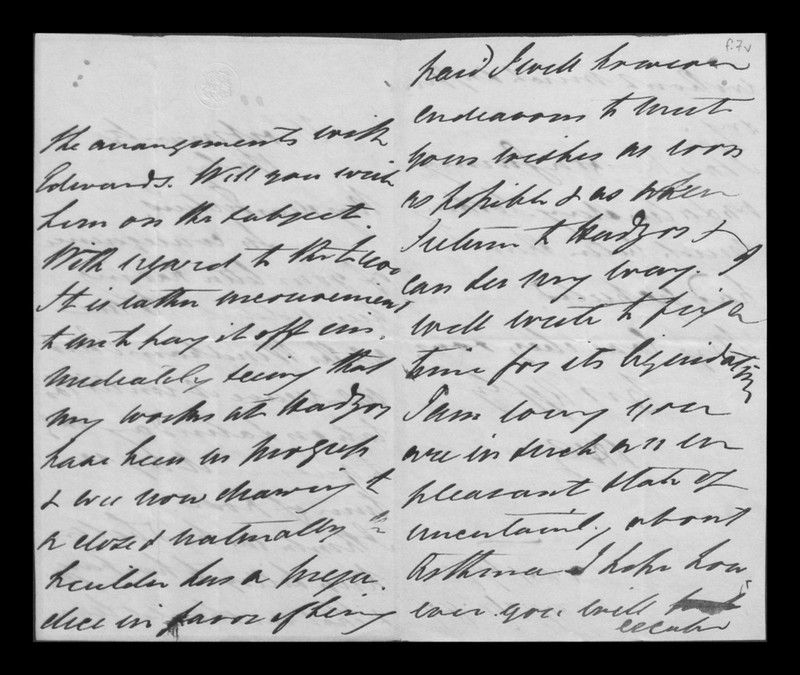 the arrangements with
Edwards. Will you write
him on the subject.
With regard to the
It is rather inconvenient
to me to pay it off im-
mediately seeing that
my works at Hadzor
have been in progress
& are now drawing to
a close & naturally the
builder has a preju-
dice in favor of being
f.7v
paid I will however
endeavour to meet
your wishes as soon
as possible & as when
I return to Hadzor &
can see my way. I
will write to fix a
time for its liquidation
I am sorry you
are in such an un
pleasant state of
uncertainty about
Asthma I hope how
ever you will